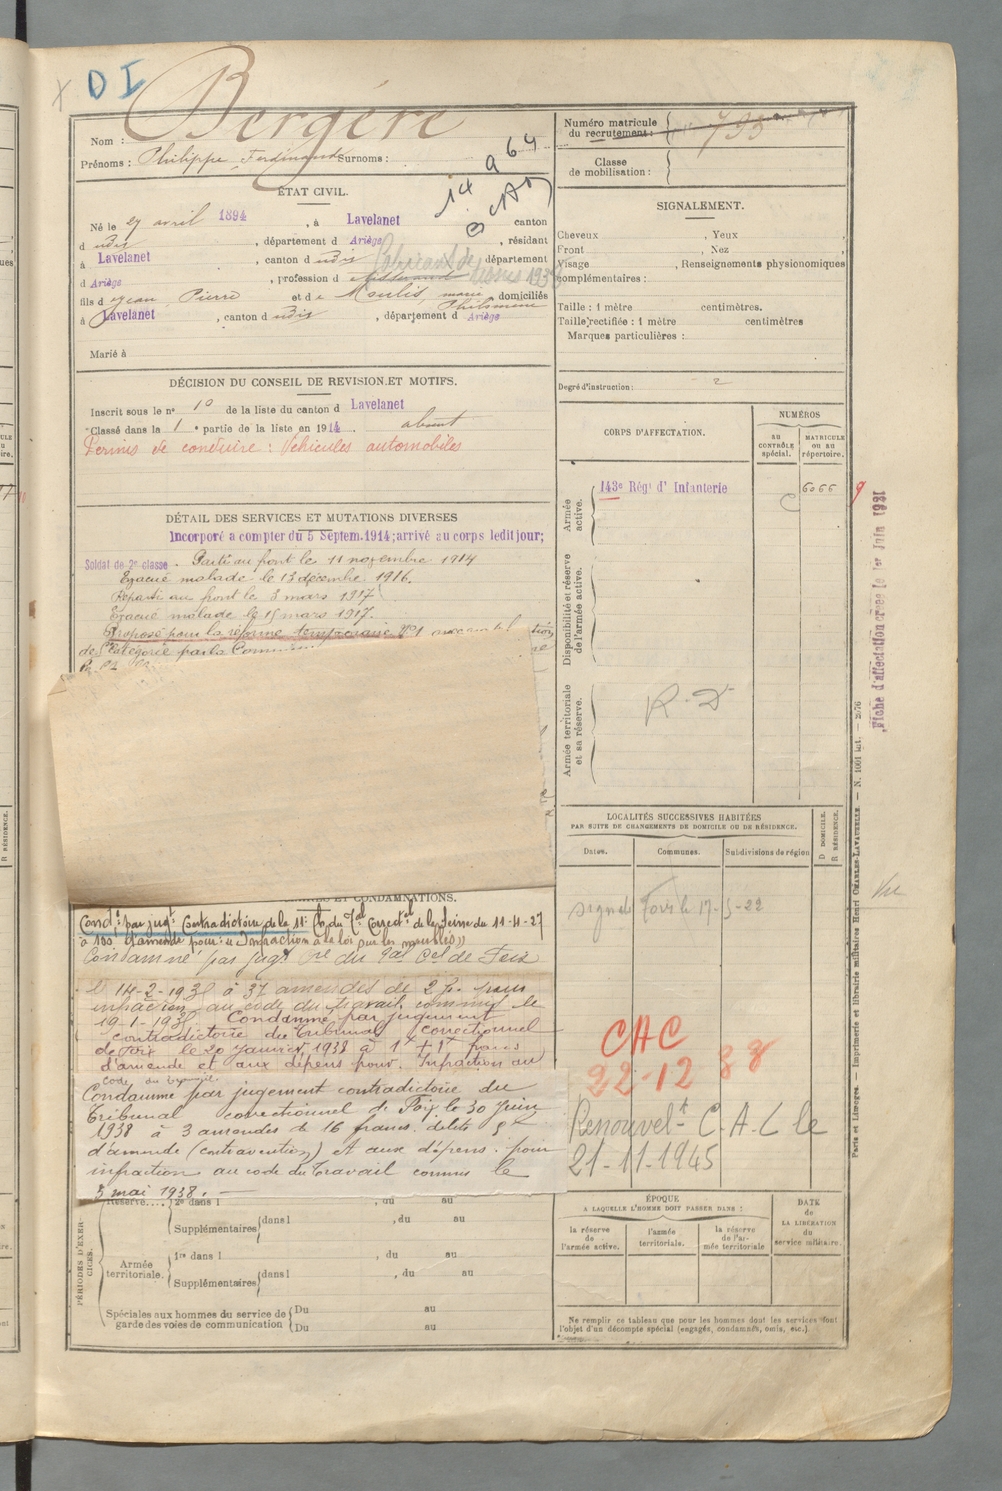 D I
Bergère
Nom :
Prénoms : Philippe Ferdinand Surnoms :
ÉTAT CIVIL.
Né le 27 avril 1894, à Lavelanet canton
d udis, département d Ariège, résidant
à Lavelanet, canton d udis département
d Ariège, profession d
Fabricant de 1938
fils d Jean Pierre et de Moulis, marie Philomène, domiciliés
à Lavelanet, canton d udis, département d Ariège
Marié à
DÉCISION DU CONSEIL DE REVISION ET MOTIFS.
Inscrit sous le n° 10 de la liste du canton d Lavelanet
Classé dans la 1 e partie de la liste en 1914. absent
Permis de conduire : Véhicules automobiles
DÉTAIL DES SERVICES ET MUTATIONS DIVERSES
Incorporé a compter du 5 Septem. 1914; arrivé au corps ledit jour;
Soldat de 2e classe - Parti au front le 11 novembre 1914
Evacué malade le 13 décembre 1916.
Reparti au front le 3 mars 1917
Evacué malade le 15 mars 1917.
Proposé pour la réforme temporaire N°1
de catégorie par la Commission
ET CONDAMNATIONS.
Condé par jugt Contradictoire de la 11e Ch du Tal Correctel de la Seine du 11-4-27
à 100 f d'amende pour: "Infraction à la loi sur les meublés"
Condamné par jugt du Tal Cel de Foix
le 14-2-1938 à 37 amendes de 2 fr. pour
infraction au code du travail commis le
19-1-1938 Condamné par jugement
contradictoire du Tribunal correctionnel
de Foix le 20 Janvier 1938 à 1 + 1 francs
d'amende et aux dépens pour. Infraction au
Code du travail
Condamné par jugement contradictoire du
Tribunal correctionnel de Foix le 30 Juin
1938 à 3 amendes de 16 francs délits
d'amende (contravention) et aux dépens. pour
infraction au code du Travail commis le
5 mai 1938. —
PÉRIODES D'EXERCICES.
Réserve.... 2e dans l , du au
Supplémentaires dans l , du au
Armée territoriale. 1re dans l , du au
Supplémentaires dans l , du au
Spéciales aux hommes du service de garde des voies de communication Du au
Du au
Numéro matricule du recrutement : 793
Classe de mobilisation :
SIGNALEMENT.
Cheveux , Yeux ,
Front , Nez ,
Visage , Renseignements physionomiques
complémentaires :
Taille : 1 mètre centimètres.
Taille rectifiée : 1 mètre centimètres
Marques particulières :
Degré d'instruction : 2
CORPS D'AFFECTATION.
NUMÉROS
AU CONTRÔLE spécial.
MATRICULE OU AU répertoire.
Armée active.
143e Régt d' Infanterie
6066
9
Disponibilité et réserve de l'armée active.
Armée territoriale et sa réserve.
R. D
Fiche d'affectation créée le 1er Juin 1931
LOCALITÉS SUCCESSIVES HABITÉES
PAR SUITE DE CHANGEMENTS DE DOMICILE OU DE RÉSIDENCE.
Dates. Communes. Subdivisions de région
D DOMICILE.
R RÉSIDENCE.
Foix le 17-5-22
Vu
CAC
22-12 38
Renouvelt C. A. C le
21-11-1945
ÉPOQUE
A LAQUELLE L'HOMME DOIT PASSER DANS :
la réserve de l'armée active.
l'armée territoriale.
la réserve de l'armée territoriale
DATE de LA LIBÉRATION du service militaire.
Ne remplir ce tableau que pour les hommes dont les services font
l'objet d'un décompte spécial (engagés, condamnés, omis, etc.)
Paris et Limoges. — Imprimerie et librairie militaires Henri CHARLES-LAVAUZELLE. — N. 1001 bat. — 2076